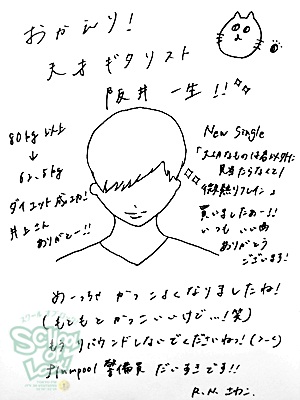 おかえり!
天才ギタリスト
阪井 一生!!
80kg以上
↓
62.5kg
ダイエット成功!
井上さん
ありがとー!!
New Single
「大切なものは君以外に
見当たらなくて/
微熱リフレイン」
買いましたぁー!!
いつも いい曲
ありがとう
ございます!
めーっちゃ かっこよくなりましたね!
(もともと かっこいいけど…!笑)
もう、リバウンドしないでくださいねっ!
flumpool 警備員 だいすきです!!
R.N.
SCHOOL OF LOCK!